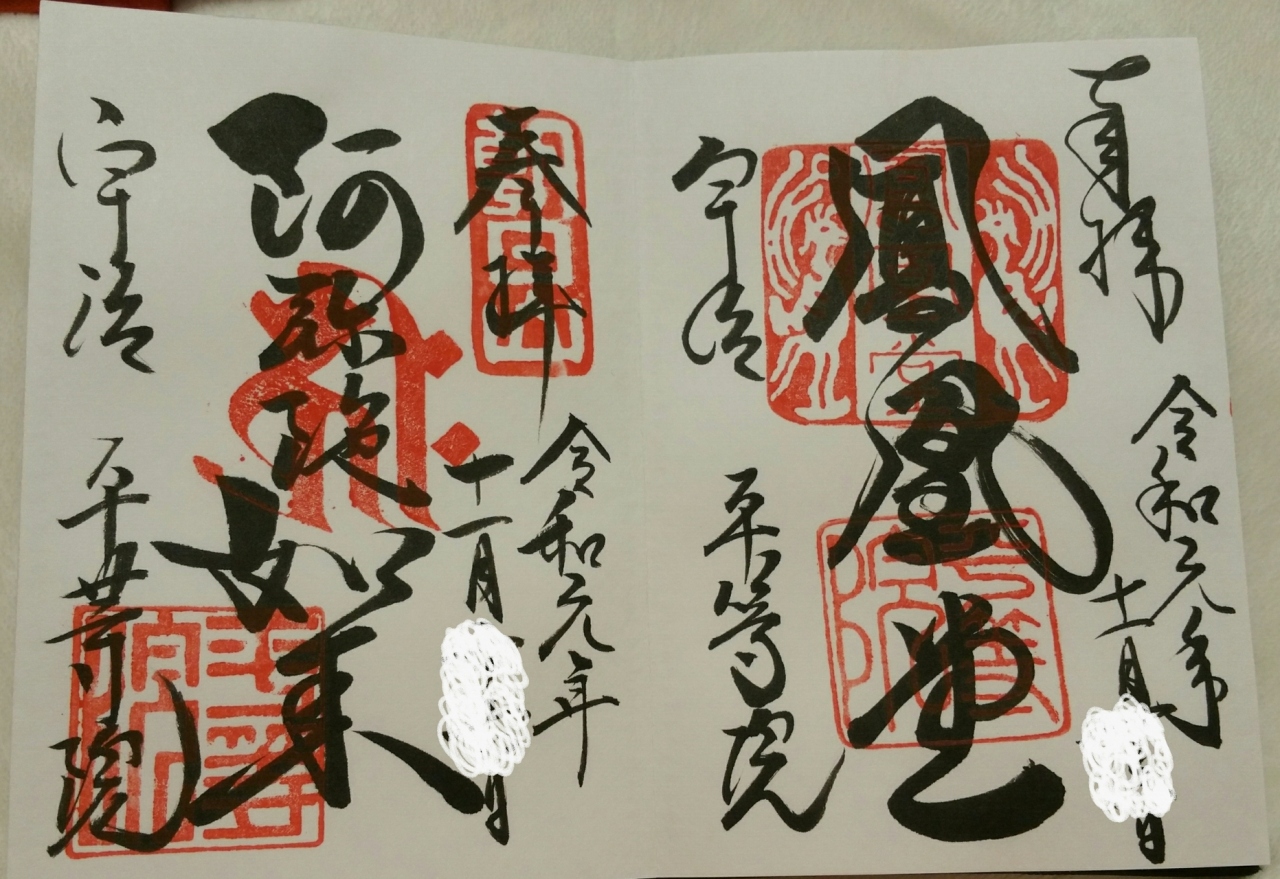 奉拝
令和元年
十一月
日
鳳凰堂
宇治
平等院
奉拝
令和元年
十一月
日
阿弥陀如来
宇治
平等院